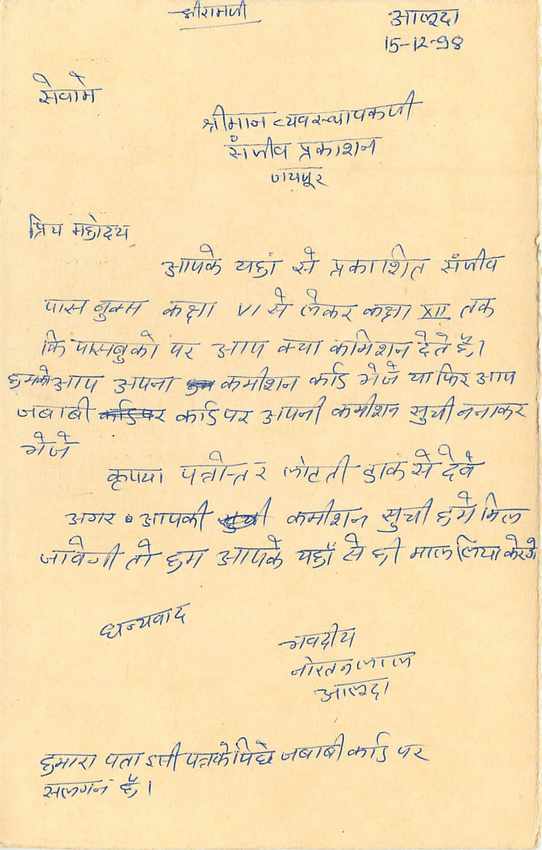 श्रीरामजी
आलूदा
15-12-98
सेवामे
श्रीमान व्यवस्थापकजी
संजीव प्रकाशन
जयपूर
प्रिय महोदय
आपके यहां से प्रकाशित संजीव
पास बुक्स कक्षा VI से लेकर कक्षा XII तक
कि पासबुको पर आप क्या कमिशन देते है,।
हमको आप अपना कमीशन कार्ड भेजे या फिर आप
जबाबी कार्ड पर अपनी कमीशन सुची बनाकर
भेजे
कृपया पत्रोन्तर लोटती डाक से देवे
अगर आपकी कमीशन सुची हमे मिल
जावेगी तो हम आपके यहाँ से ही माल लिया करेगे
धन्यवाद
भवदीय
नोरतनलाल
आलूदा
हमारा पता इसी पत्र के पिछे जबाबी कार्ड पर
सलगन है,।